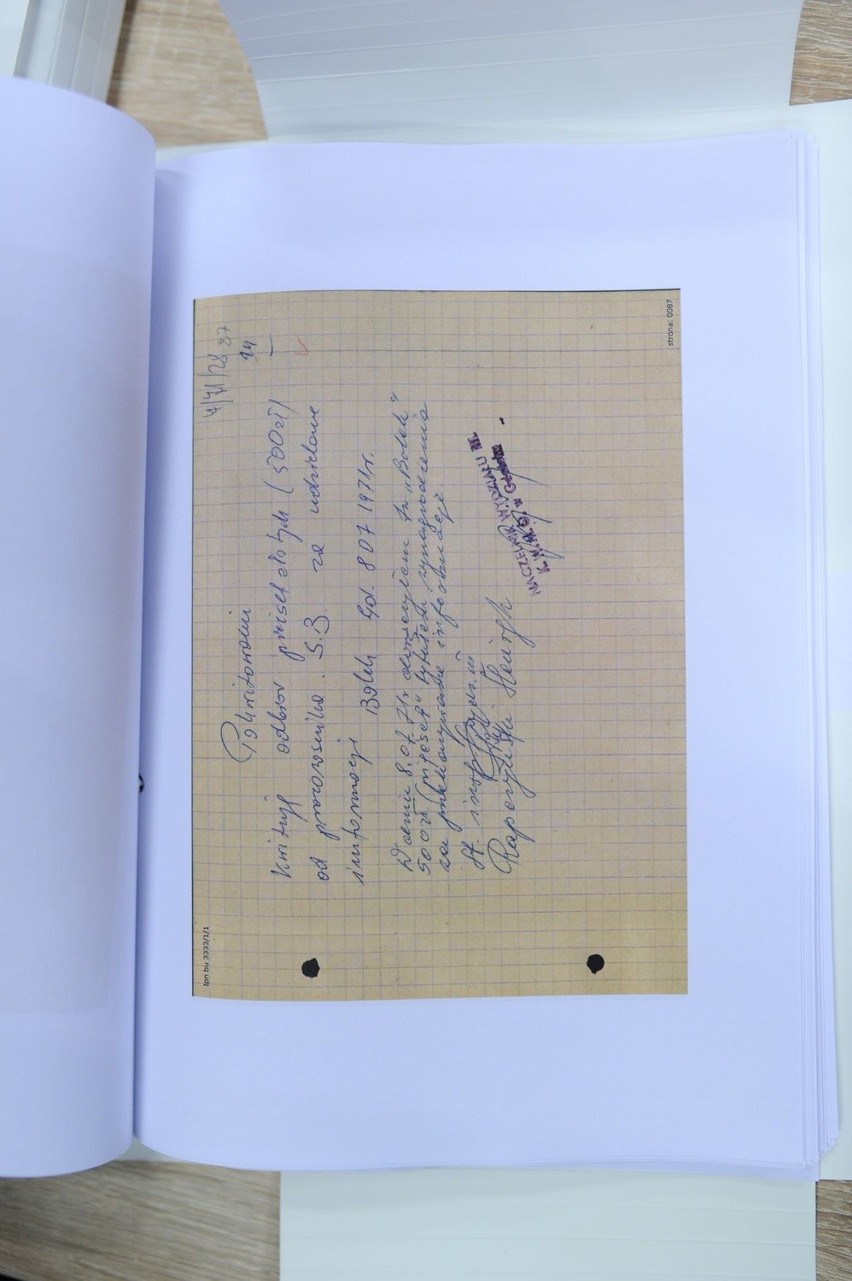 Ipn bu 3333/1/1
87
Pokwitowanie
Kwituję odbiór pięciuset złotych (500 zł)
od pracownika S.B. za udzielone
informacje Bolek Gd. 8 07 1971r.
W dniu 8.07.71r. wręczyłem tw. „Bolek"
500 zł (pięćset) tytułem wynagrodzenia
za przekazywane informacje.
St. inspektor
Rapczyński Henryk
NACZELNIK WYDZIAŁU III
K.W.M.O. w Gdańsku
strona: 0087